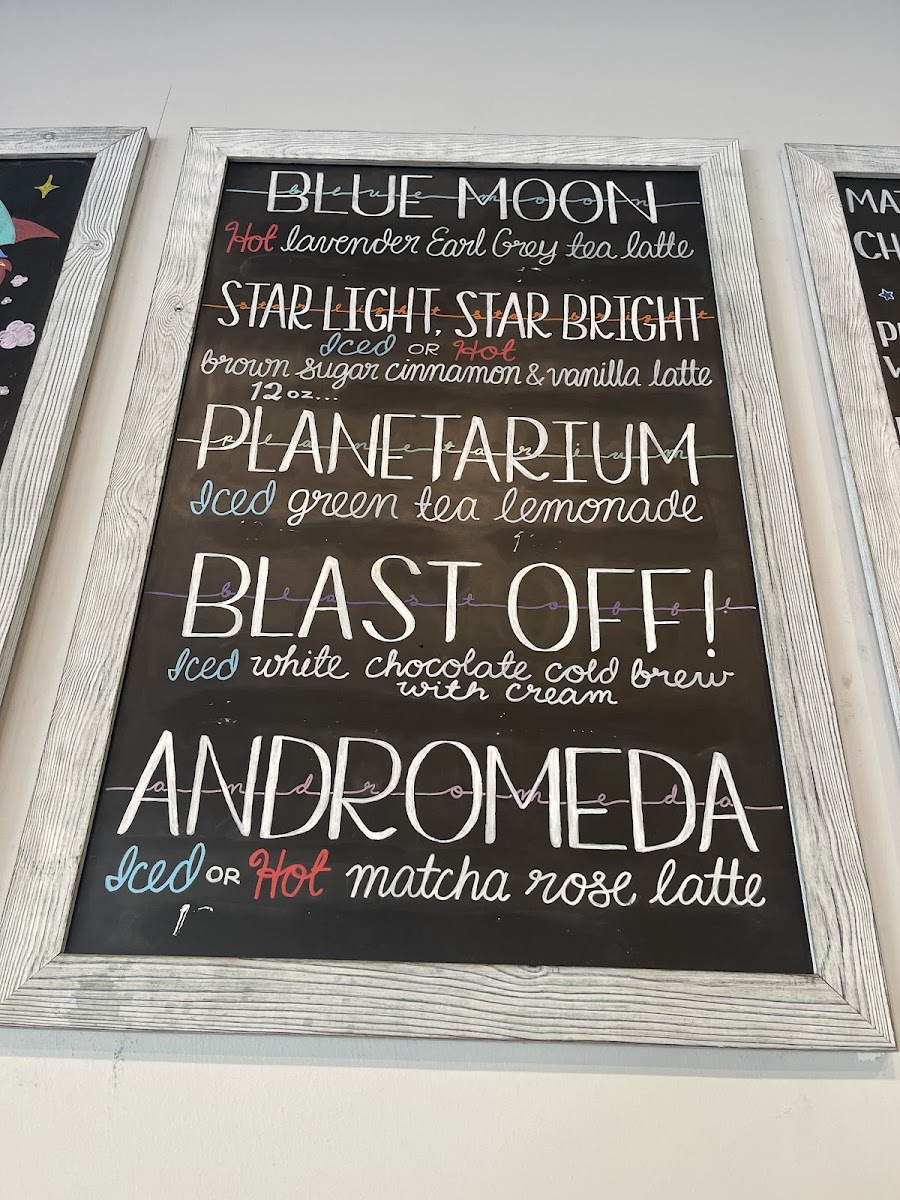 BLUE MOON
blue moon
Hot lavender Earl Grey tea latte
STAR LIGHT, STAR BRIGHT
star light star bright
Iced OR Hot
brown sugar cinnamon & vanilla latte
12 oz...
PLANETARIUM
planetarium
Iced green tea lemonade
BLAST OFF!
blast off!
Iced white chocolate cold brew
with cream
ANDROMEDA
andromeda
Iced OR Hot matcha rose latte
MAT
CH